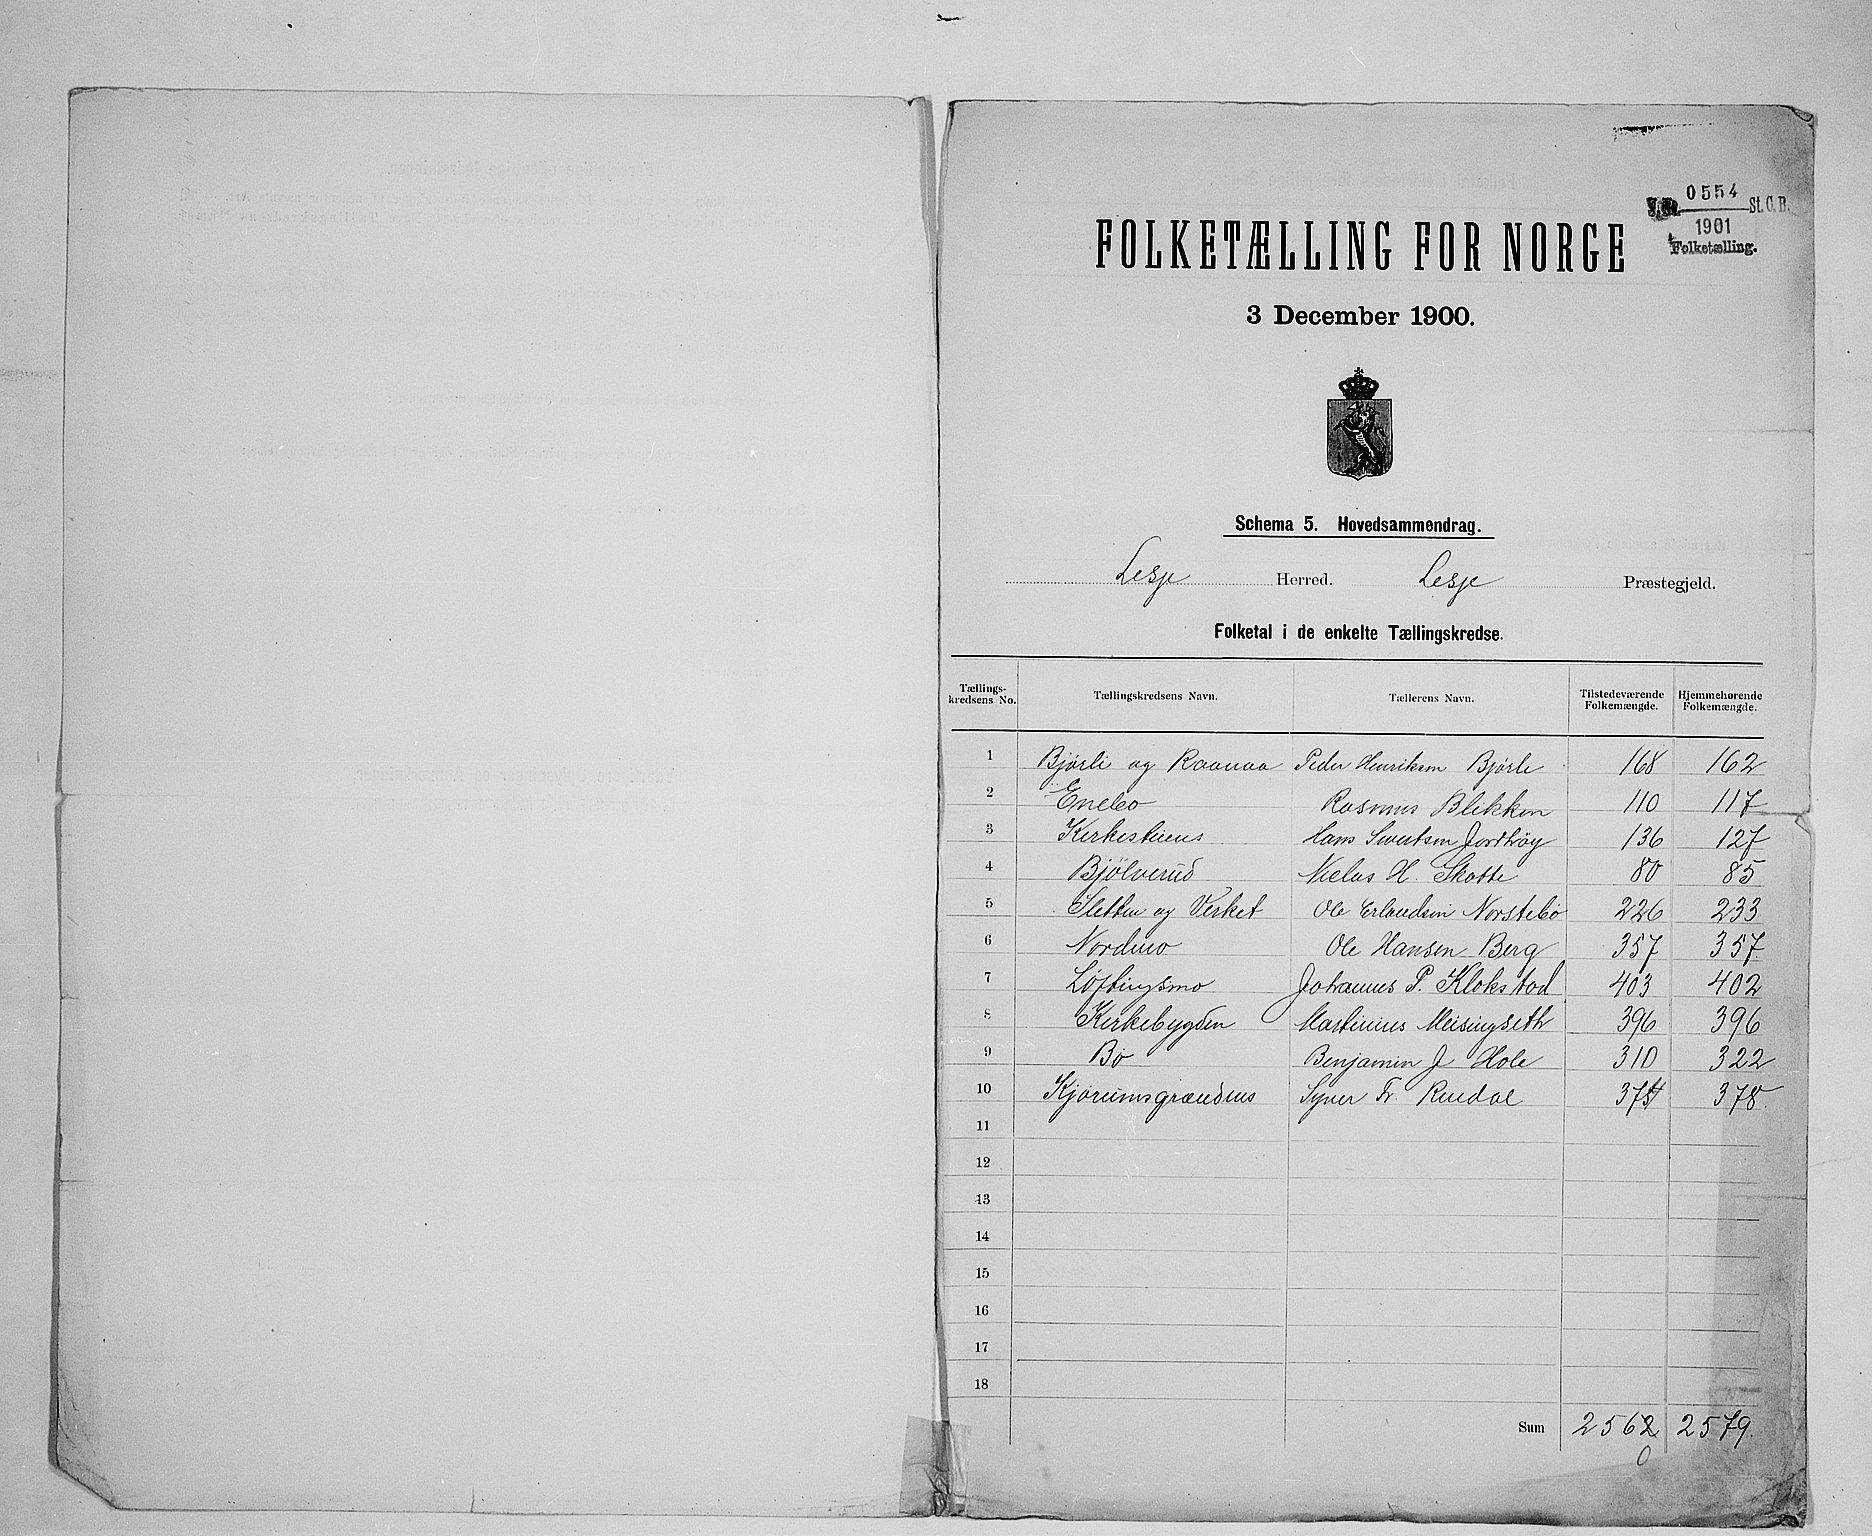 J.No. 0554 St. C. B.
1901
Folketælling.
FOLKETÆLLING FOR NORGE
3 December 1900.
Schema 5. Hovedsammendrag.
Lesje Herred. Lesje Præstegjeld.
Folketal i de enkelte Tællingskredse.
Tællings-kredsens No. Tællingskredsens Navn. Tællerens Navn. Tilstedeværende Folkemængde. Hjemmehørende Folkemængde.
1 Bjørli og Raanaa Peder Henriksen Bjørli 168 162
2 Enebo Rasmus Blekken 110 117
3 Kirkestuens Hans Sivertsen Jordhøy 136 127
4 Bjölverud Nielas H. Skotte 80 85
5 Sletten og Verket Ole Erlandsen Norstebö 226 233
6 Nordmo Ole Hansen Berg 357 357
7 Løftingsmo Johannes P. Klokstad 403 402
8 Kirkebygden Martinius Meisingseth 396 396
9 Bø Benjamin J Hole 310 322
10 Kjørumsgrændens Syver Fr. Rindal 374 378.
11
12
13
14
15
16
17
18
Sum 2562 2579.
0